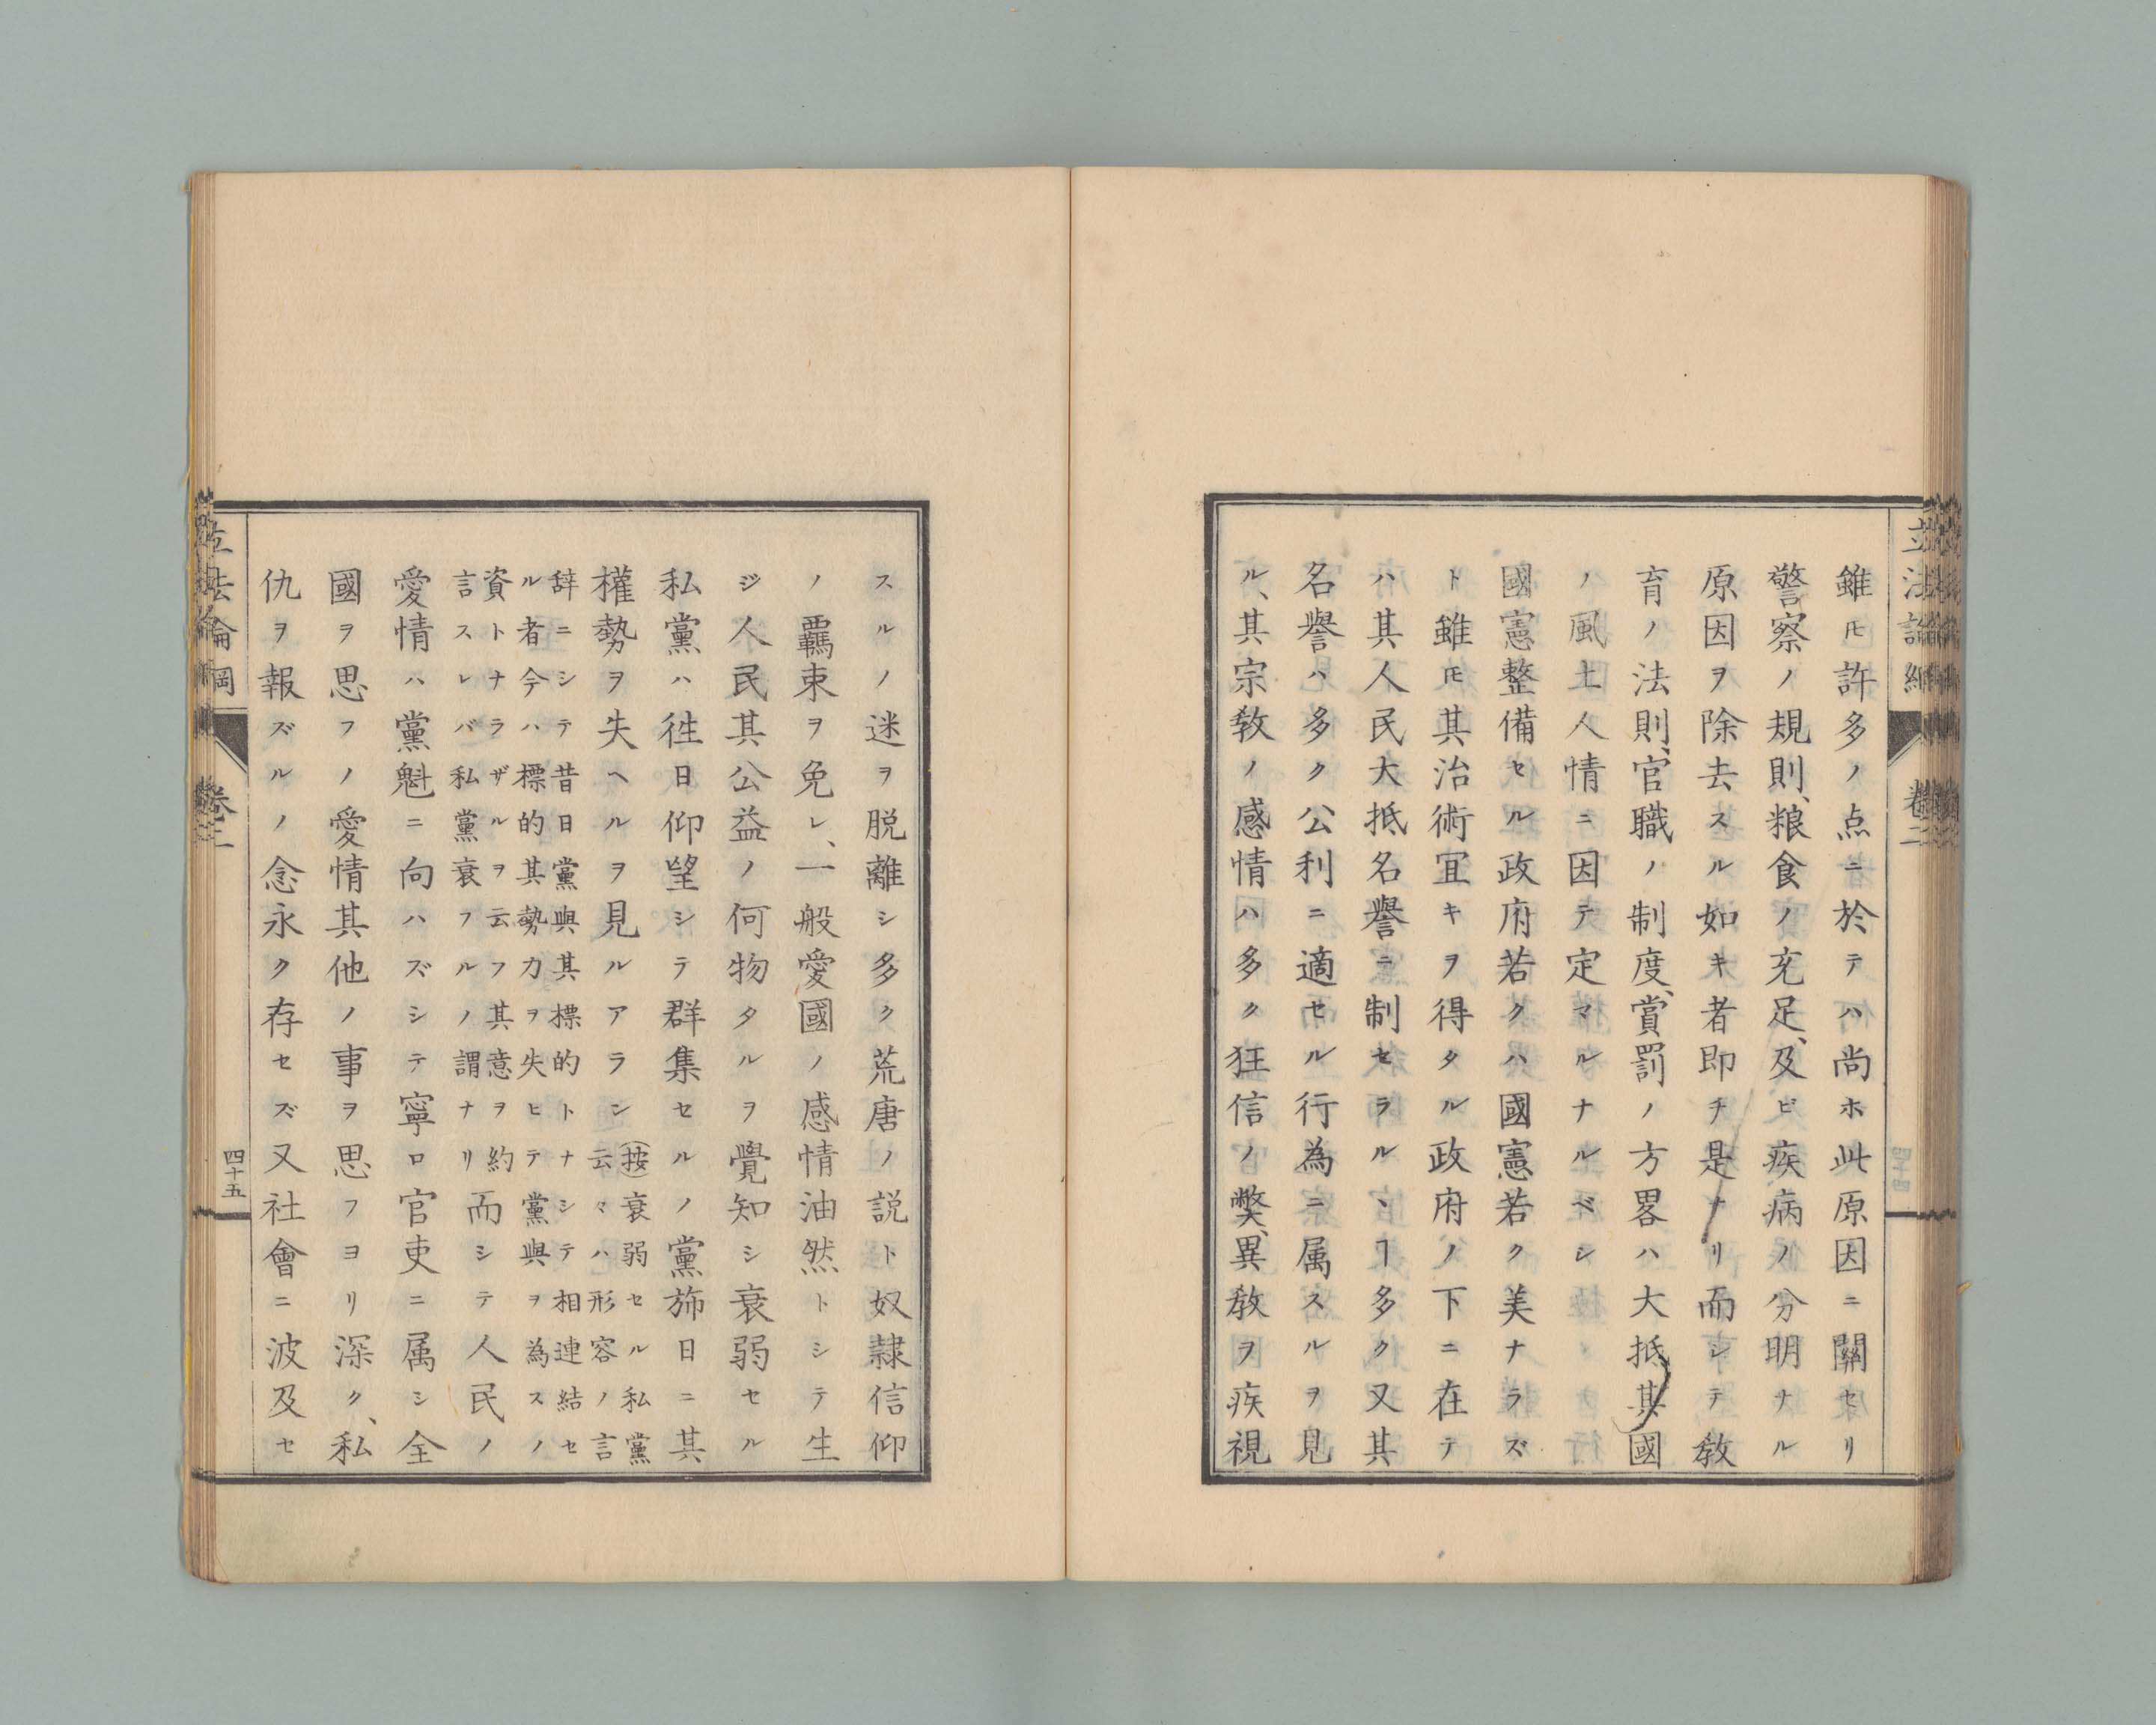 立法論綱
卷二
雖𪜈許多ノ点ニ於テハ尚ホ此原因ニ關セリ
警察ノ規則、粮食ノ充足、及ビ疾病ノ分明ナル
原因ヲ除去スル如キ者即チ是ナリ而シテ教
育ノ法則、官職ノ制度、賞罰ノ方畧ハ大抵其國
ノ風土人情ニ因テ定マルナルベシ
國憲整備セル政府若クハ國憲若ク美ナラズ
ト雖𪜈其治術冝キヲ得タル政府ノ下ニ在テ
ハ其人民大抵名譽ニ制セラルヽヿ多ク又其
名譽ハ多ク公利ニ適セル行為ニ属スルヲ見
ル、其宗教ノ感情ハ多ク狂信ノ弊、異教ヲ疾視
スルノ迷ヲ脱離シ多ク荒唐ノ説ト奴隷信仰
ノ覊束ヲ免レ、一般愛國ノ感情油然トシテ生
ジ人民其公益ノ何物タルヲ覺知シ衰弱セル
私黨ハ徃日仰望シテ群集セルノ黨斾日ニ其
權勢ヲ失ヘルヲ見ルアラン(按)衰弱セル私黨
云々ハ形容ノ言
辞ニシテ昔日黨與其標的トナシテ相連結セ
ル者今ハ標的其勢力ヲ失ヒテ黨與ヲ為スノ
資トナラザルヲ云フ其意ヲ約
言スレバ私黨衰フルノ謂ナリ而シテ人民ノ
愛情ハ黨魁ニ向ハズシテ寧ロ官吏ニ属シ全
國ヲ思フノ愛情其他ノ事ヲ思フヨリ深ク、私
仇ヲ報ズルノ念永ク存セズ又社會ニ波及セ
立法論綱
卷二
四十五